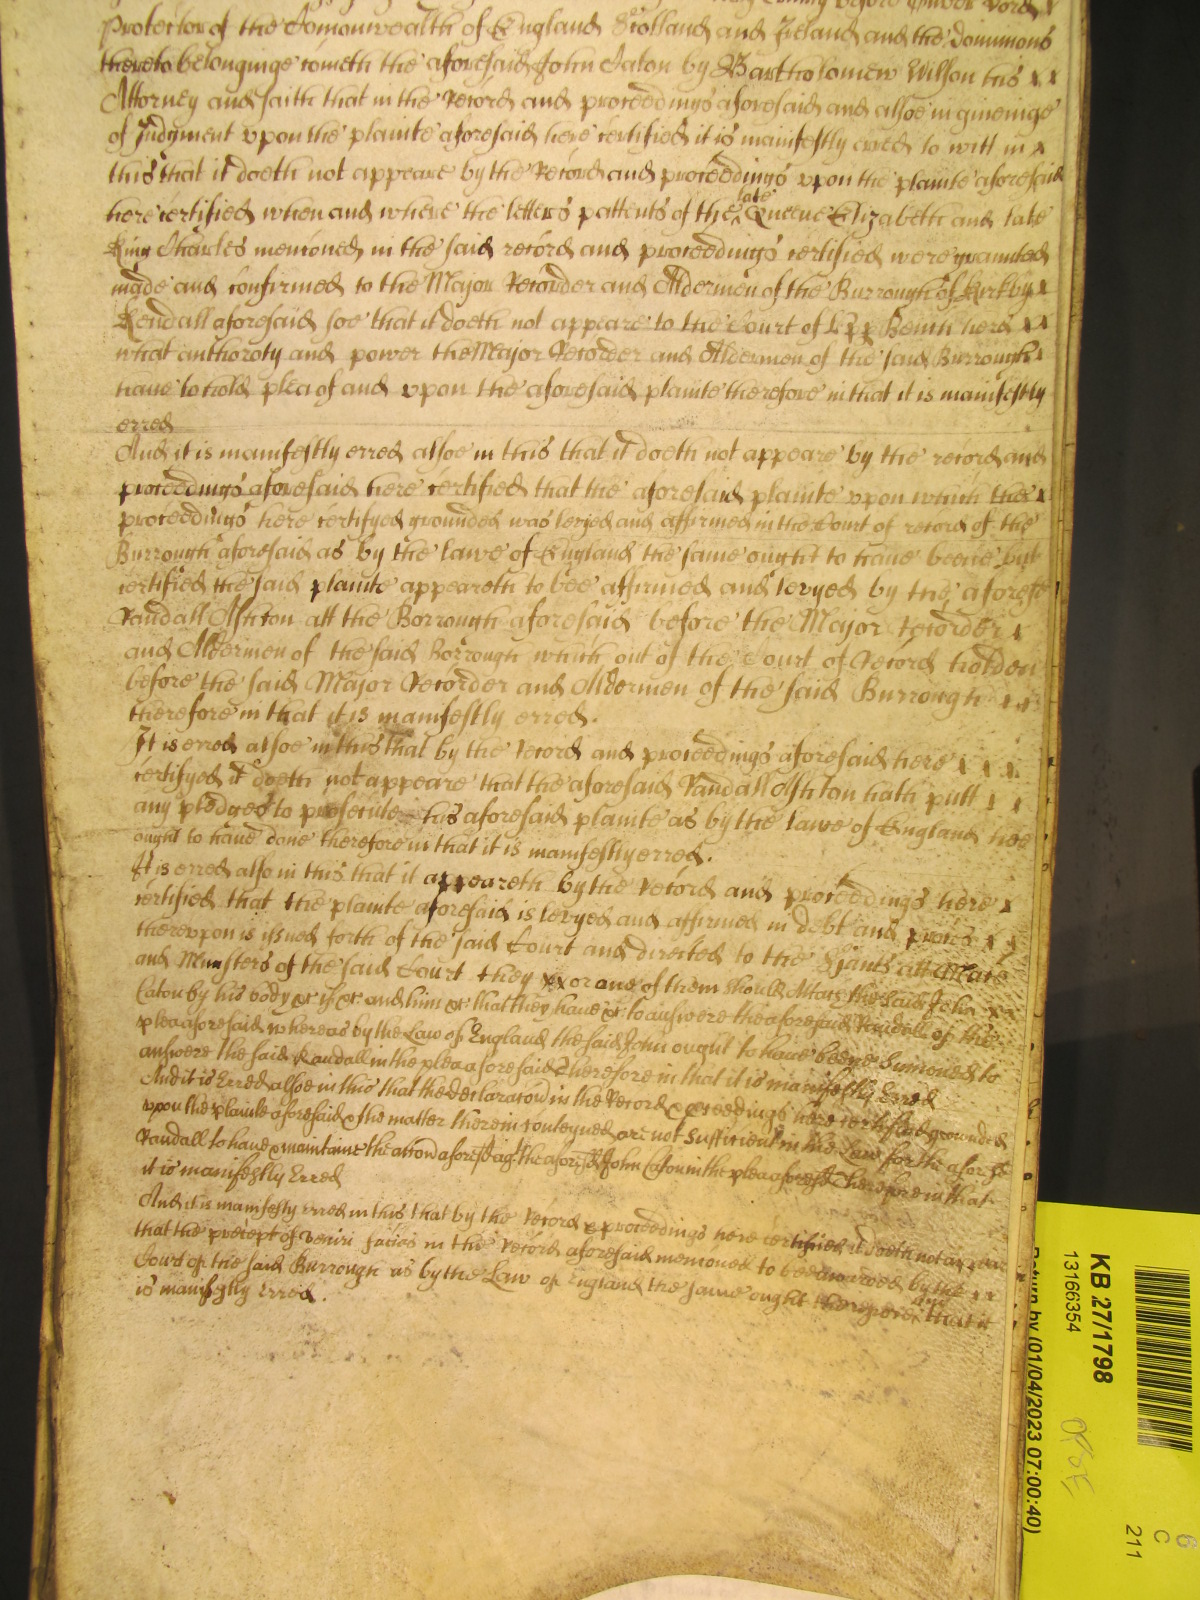 before Oliver Lord
Protector of the Comonwealth of England Scotland and Ireland and the dominions
thereto belonginge cometh the aforesaid John Caton by Bartholomew Wilson his x x
Attorney and saith that in the Record and proceedings aforesaid and alsoe in giveinge
of Judgment upon the plainte aforesaid here certified it is manifestly erred to witt in x
this that it doeth not appeare by the Record and proceedings upon the plainte aforesaid
here certified when and where the letters pattents of the late Queene Elizabeth and late
King Charles mencioned in the said record and proceedings certified were graunted
made and confirmed to the Major Recorder and Aldermen of the Burrough of Kirkby x
Kendall aforesaid soe that it doeth not appeare to the Court of Upp Bench here x x
what authoroty and power the Major Recorder and Aldermen of the said Burrough x
have to hold plea of and upon the aforesaid plainte therefore in that it is manifestly
erred
And it is manifestly erred alsoe in this that it doeth not appeare by the record and
proceedings aforesaid here certified that the aforesaid plainte upon which the x
proceedings here certifyed grounded was levyed and affirmed in the Court of record of the
Burrough aforesaid as by the lawe of England the same ought to have beene but
certified the said plainte appeareth to bee affirmed and levyed by the aforesd
Randall Ashton att the Borrough aforesaid before the Major recorder x
and Aldermen of the said Borrough which out of the Court of Record holden
before the said Major Recorder and Aldermen of the said Burrough x x
therefore in that it is manifestly erred.
It is erred alsoe in this that by the record and proceedings aforesaid here x x x
certifyed it doeth not appeare that the aforesaid Randall Ashton hath putt x x
any pledges to prosecute his aforesaid plainte as by the lawe of England hee
ought to have done therefore in that it is manifestly erred.
It is erred also in this that it appeareth by the record and proceedings here x
certified that the plainte aforesaid is levyed and affirmed in debt and proces x x
thereupon is issued forth of the said Court and directed to the Sjants att Mace
and Ministers of the said Court they xx or one of them should Attach the said John x x
Caton by his body &c if &c and him &c that they have &c to answere the aforesaid Randall of the
plea aforesaid whereas by the Law of England the said John ought to have beene Sumoned to
answere the said Randall in the plea aforesaid Therefore in that it is manifestly Erred
And it is Erred alsoe in this that the declaracon in the Record & pceedings here certified grounded
upon the plainte aforesaid & the matter therein conteyned are not sufficient in the Law for the aforesd
Randall to have & maintaine the accon aforesd agt the aforesd John Caton in the plea aforesd Therefore in that
it is manifestly Erred
And it is manifestly erred in this that by the record & proceedings here certified it doeth not appear
that the precept of veniri facias in the record aforesaid mencioned to bee awarded by the x x
Court of the said Burrough as by the Law of England the same ought therefore in that it
is manifestly Erred.
KB 27/1798
13166354
Return by (01/04/2023 07:00:40)
6
C
211